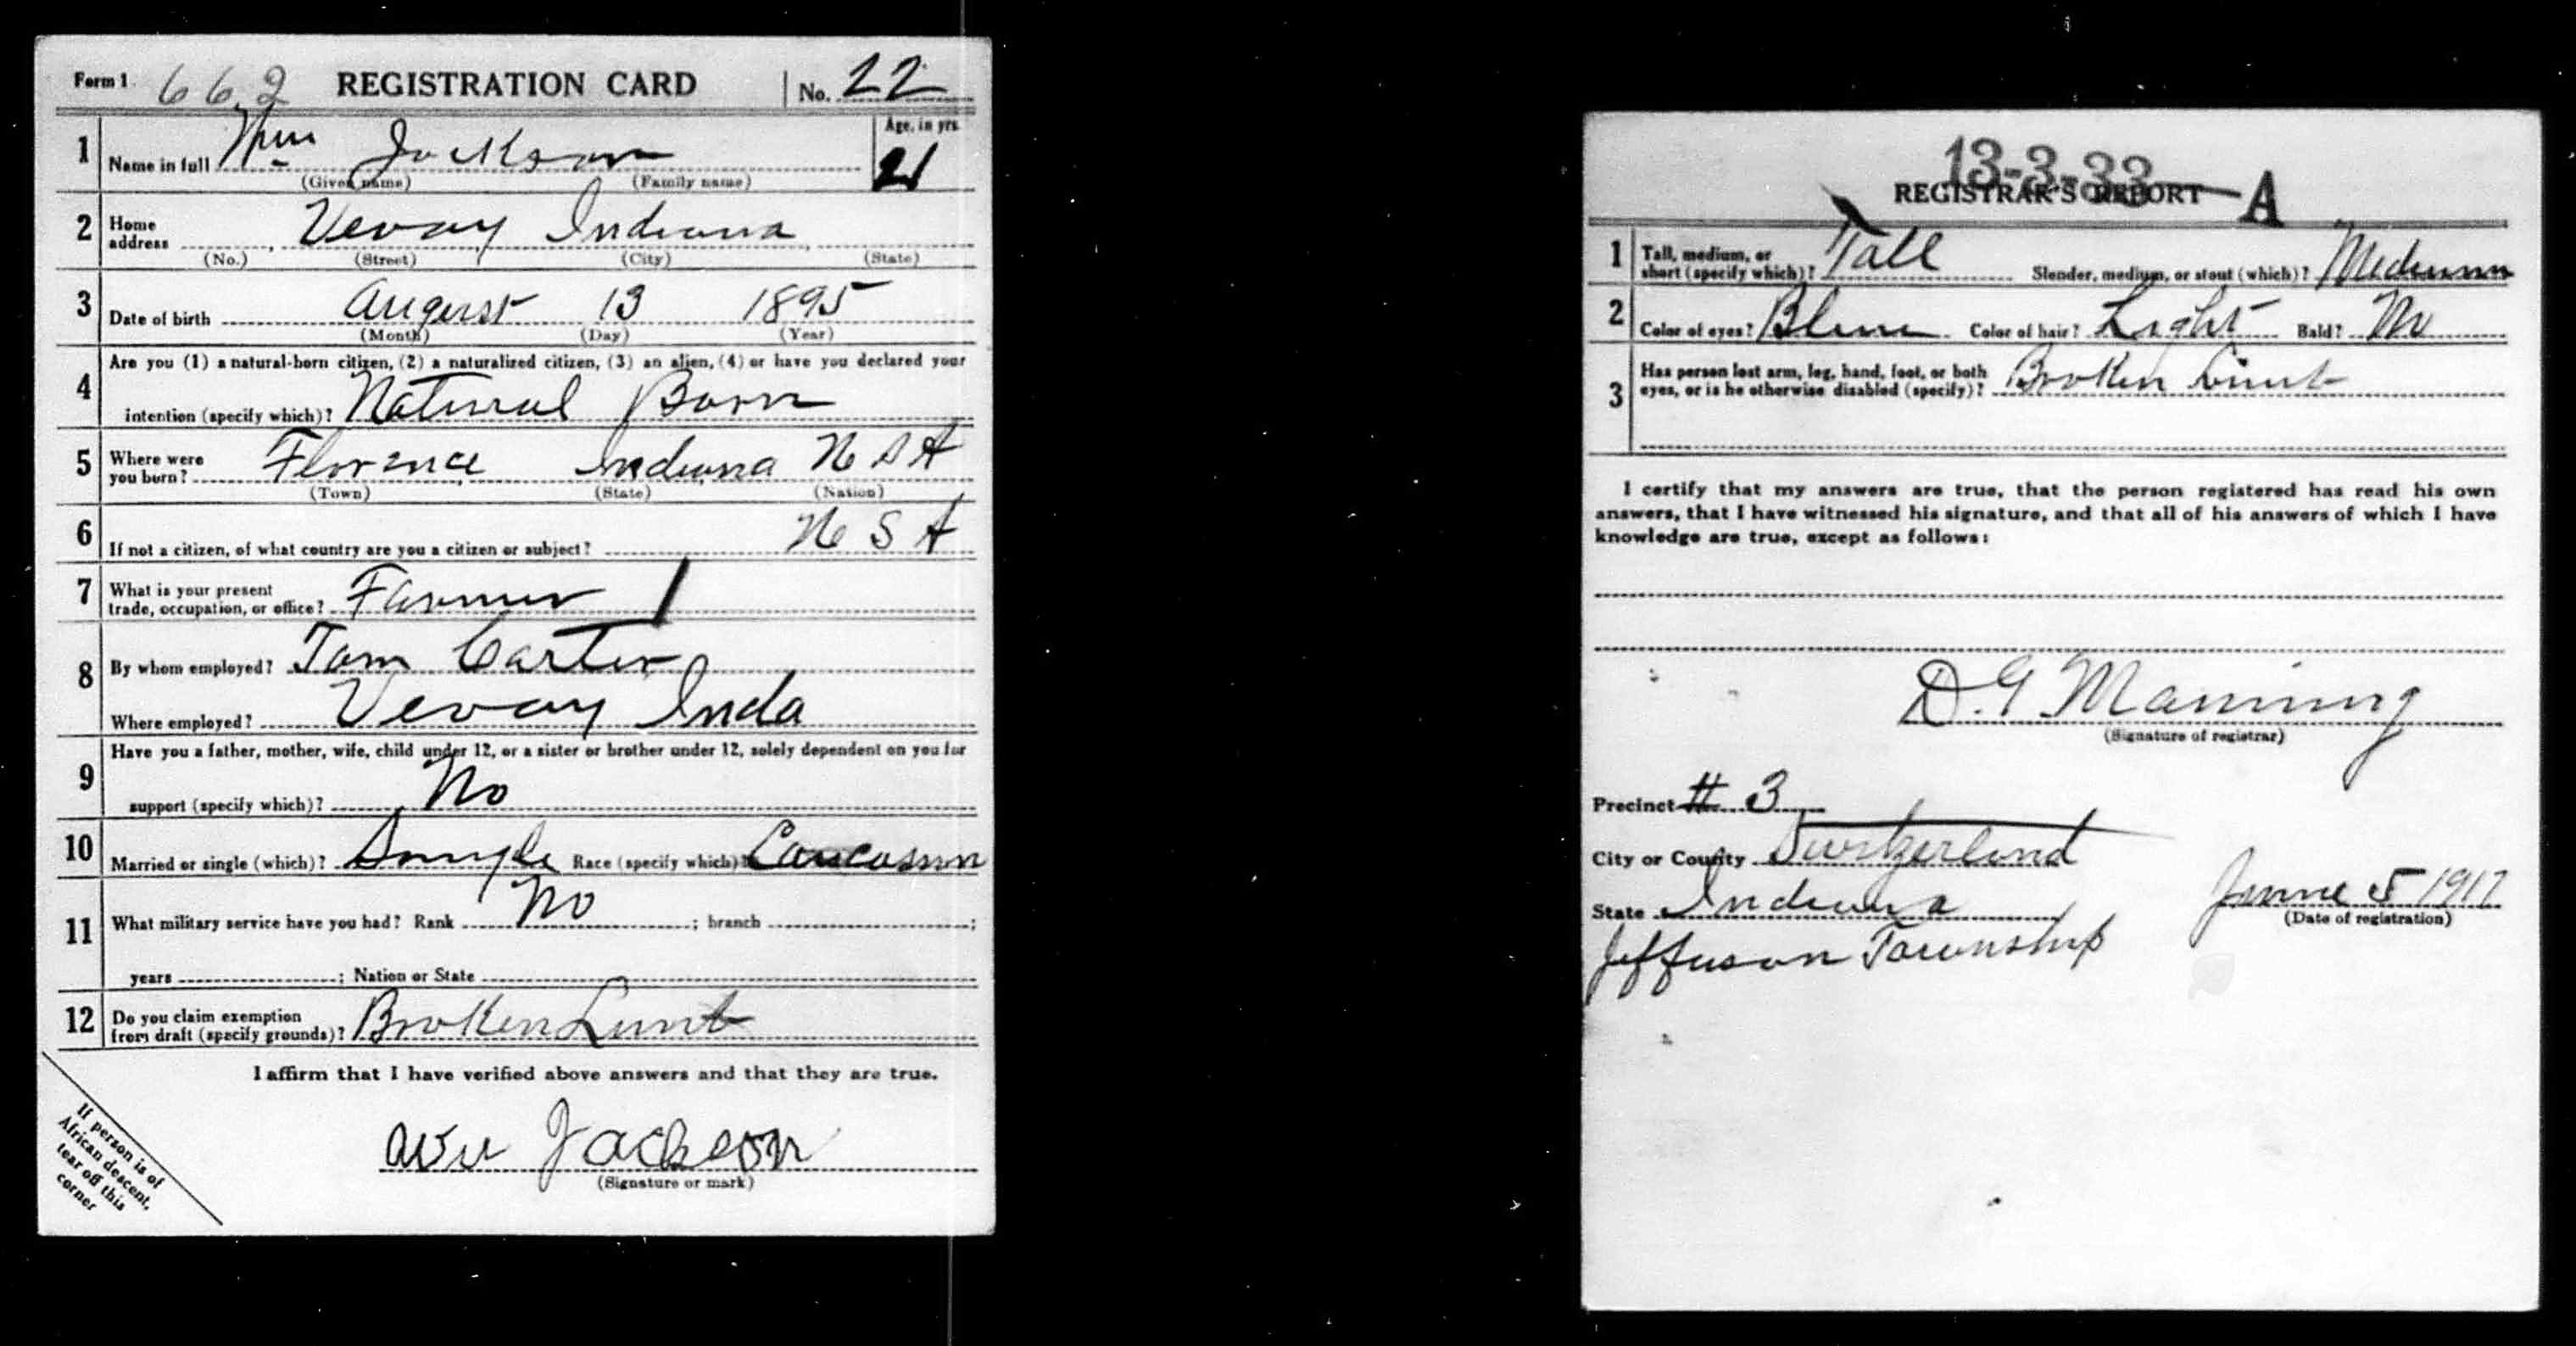 Form 1 662 REGISTRATION CARD No. 22
1 Name in full Wm Jackson Age, in yrs. 21
(Given name) (Family name)
2 Home address Vevay Indiana
(No.) (Street) (City) (State)
3 Date of birth August 13 1895
(Month) (Day) (Year)
4 Are you (1) a natural-born citizen, (2) a naturalized citizen, (3) an alien, (4) or have you declared your
intention (specify which)? Natural Born
5 Where were you born? Florence Indiana U S A
(Town) (State) (Nation)
6 If not a citizen, of what country are you a citizen or subject? U S A
7 What is your present trade, occupation, or office? Farmer
8 By whom employed? Tom Carter
Where employed? Vevay Inda
9 Have you a father, mother, wife, child under 12, or a sister or brother under 12, solely dependent on you for
support (specify which)? No
10 Married or single (which)? Single Race (specify which)? Caucasian
11 What military service have you had? Rank No ; branch ;
years ; Nation or State
12 Do you claim exemption from draft (specify grounds)? Broken
I affirm that I have verified above answers and that they are true.
Jackson
(Signature or mark)
If person is of
African descent,
tear off this
corner
13-3-33 A
REGISTRAR'S REPORT
1 Tall, medium, or short (specify which)? Tall Slender, medium, or stout (which)? Medium
2 Color of eyes? Blue Color of hair? Light Bald? No
3 Has person lost arm, leg, hand, foot, or both
eyes, or is he otherwise disabled (specify)? Broken
I certify that my answers are true, that the person registered has read his own
answers, that I have witnessed his signature, and that all of his answers of which I have
knowledge are true, except as follows:
D. G Manning
(Signature of registrar)
Precinct # 3
City or County Switzerland
State Indiana June 5 1917
(Date of registration)
Jefferson Township